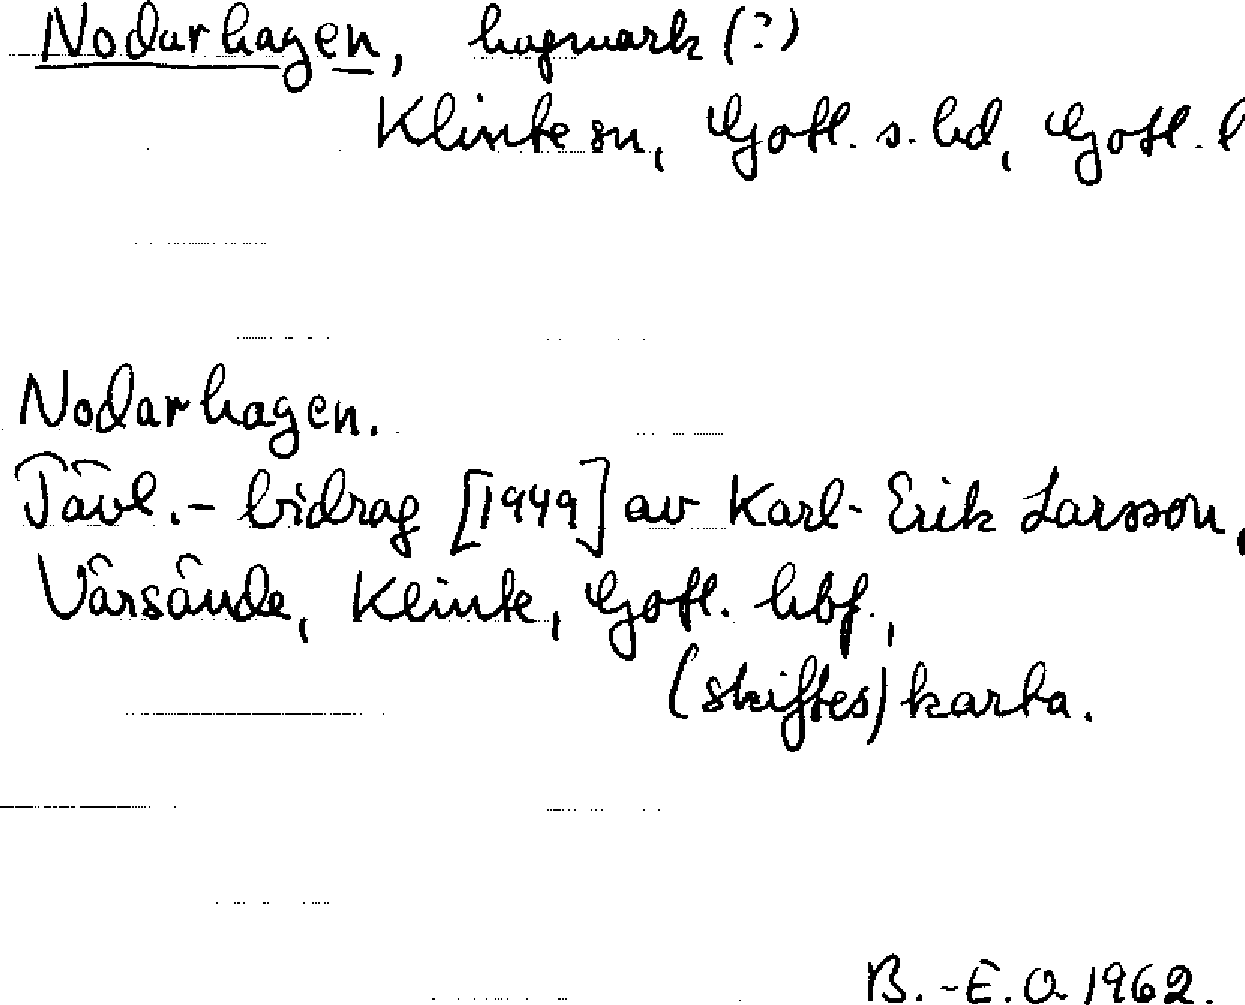 Nodarhagen, hagmark (?)
Klinte sn, Gotl. s. hd, Gotl. l
Nodarhagen.
Tävl.-bidrag [1949] av Karl-Erik Larsson,
Värsände, Klinte, Gotl. hbf.,
(skiftes)karta.
B.-E.O. 1962.